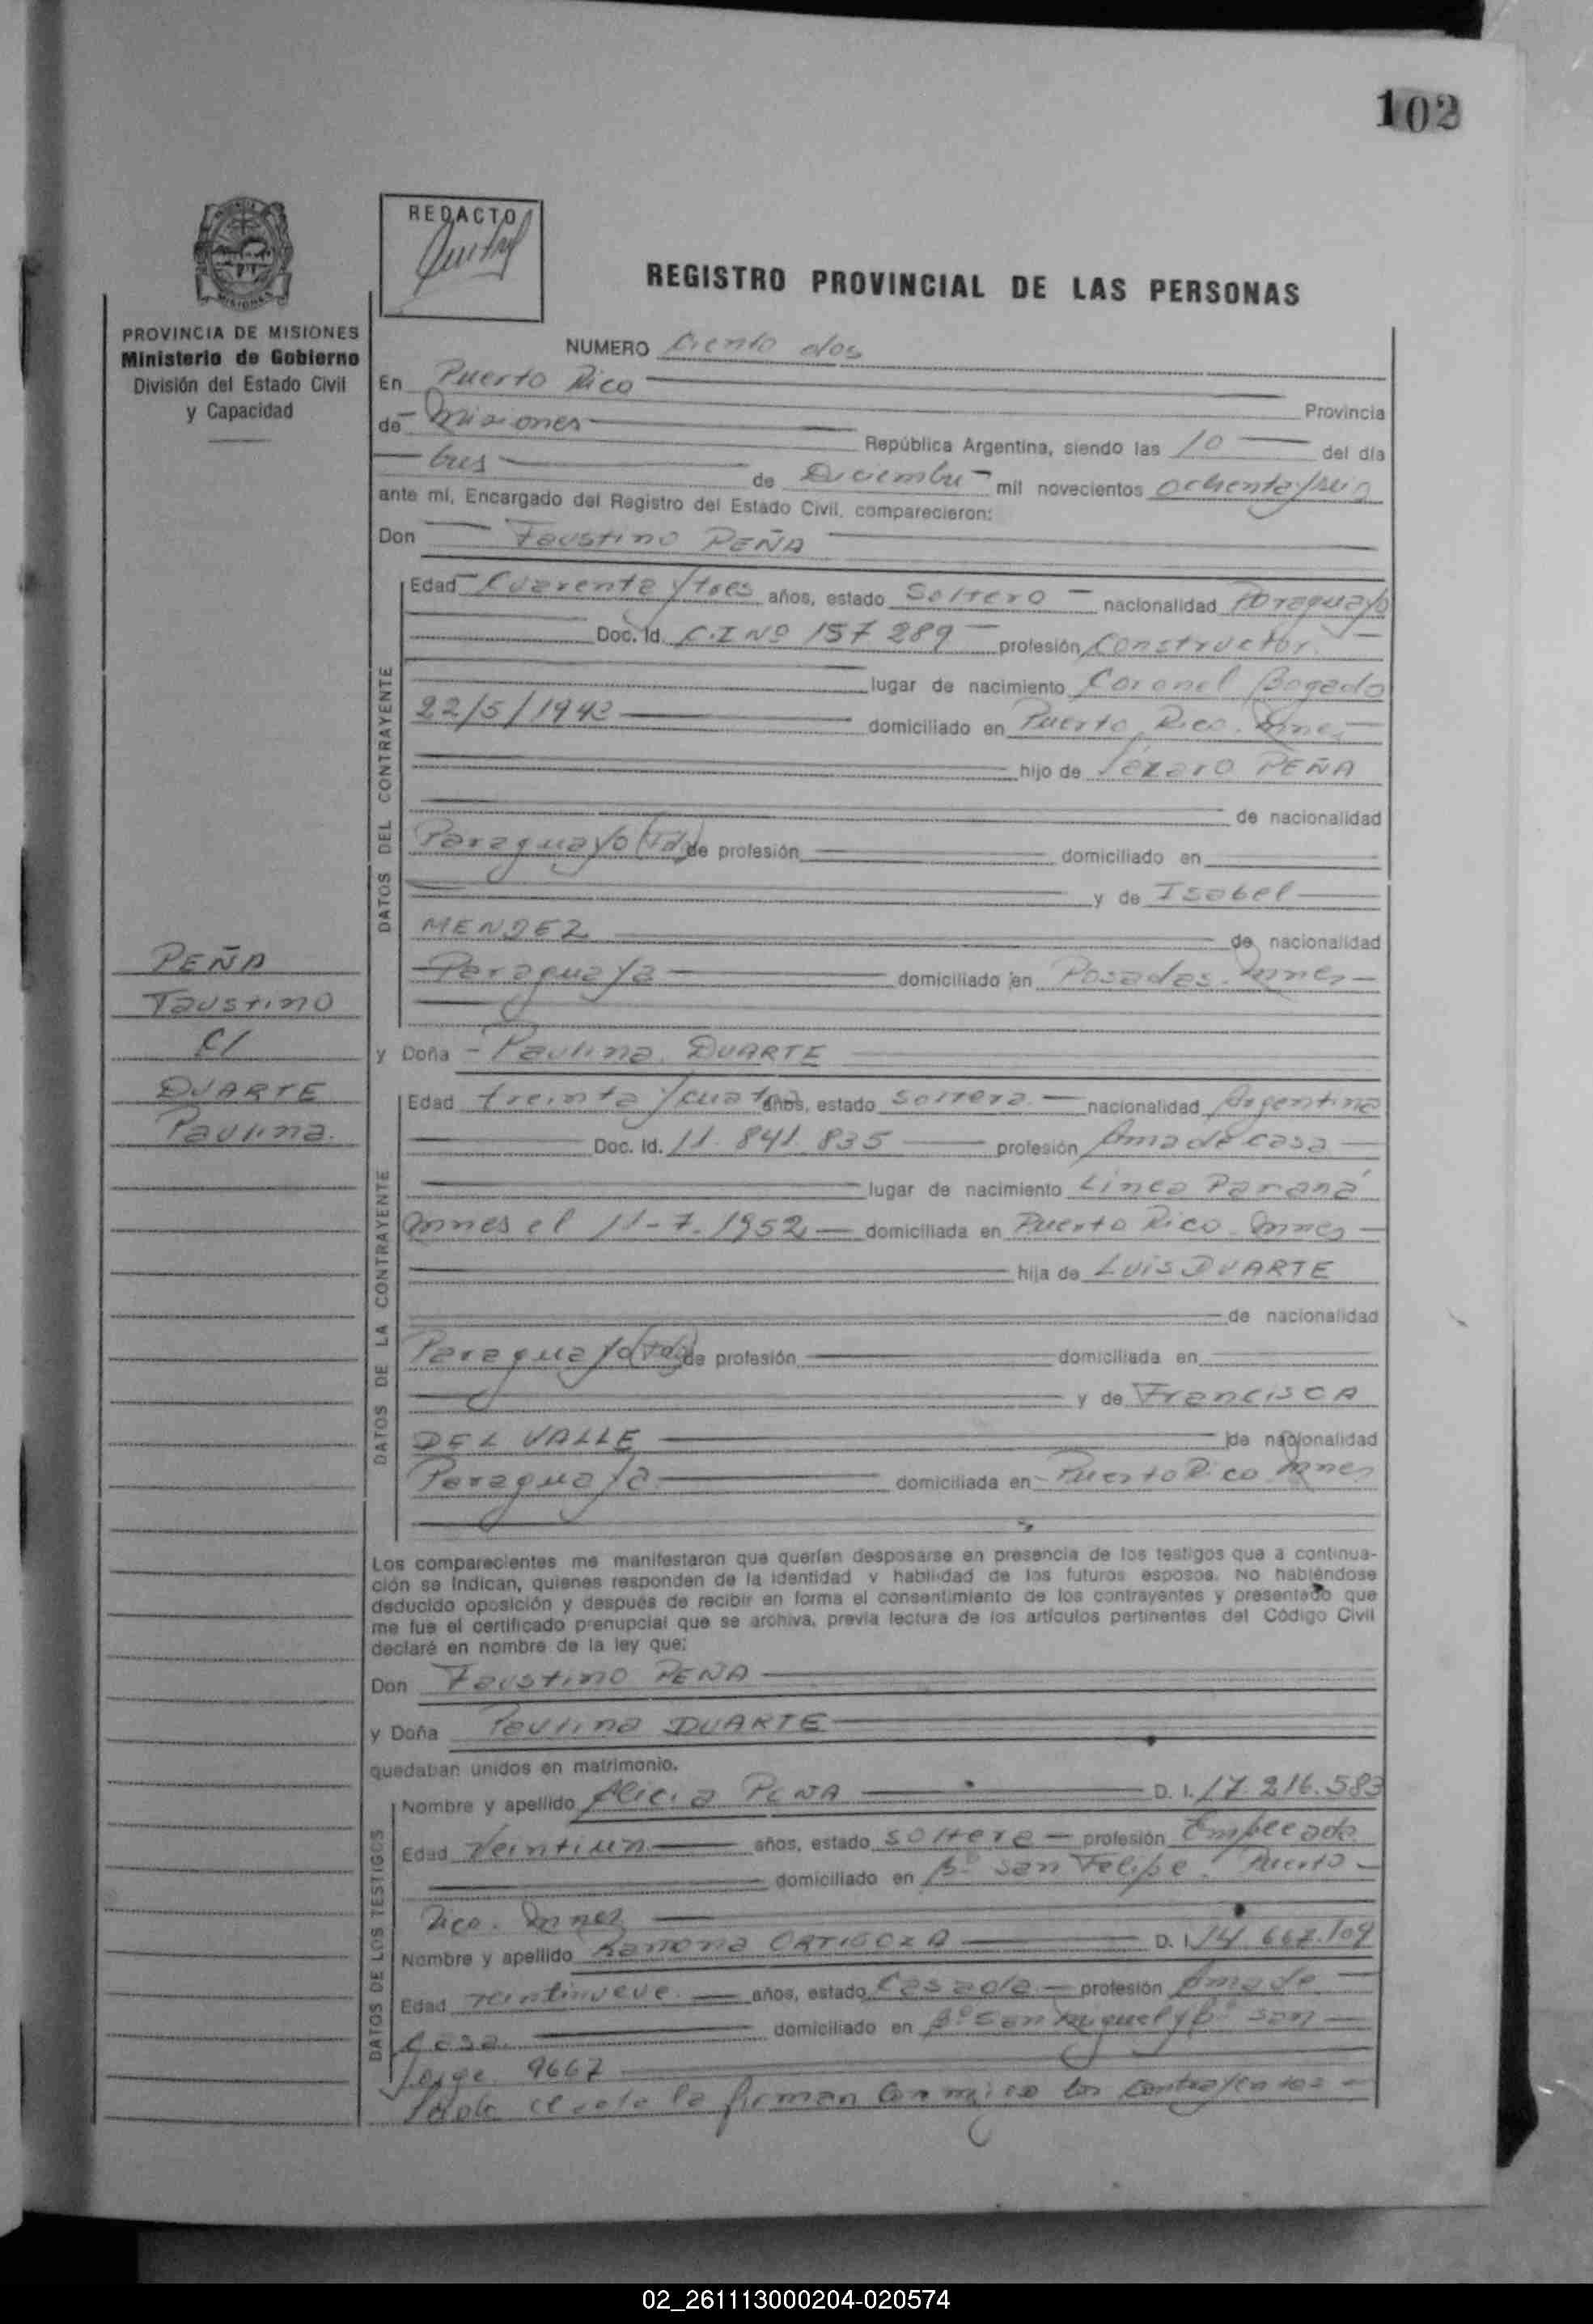 102
REDACTO
REGISTRO PROVINCIAL DE LAS PERSONAS
PROVINCIA DE MISIONES
Ministerio de Gobierno
División del Estado Civil
y Capacidad
NUMERO Ciento dos
En Puerto Rico
Provincia
de Misiones República Argentina, siendo las 10 del día
tres de Diciembre mil novecientos ochenta y seis
ante mí, Encargado del Registro del Estado Civil, comparecieron:
Don Faustino PEÑA
DATOS DEL CONTRAYENTE
Edad Cuarenta y tres años, estado Soltero nacionalidad Paraguayo
Doc. Id. C.I Nº 157 289 profesión Constructor
lugar de nacimiento Coronel Bogado
22/5/1943 domiciliado en Puerto Rico. Mnes
hijo de Lázaro PEÑA
de nacionalidad
Paraguayo de profesión domiciliado en
y de Isabel
MENDEZ de nacionalidad
Paraguaya domiciliado en Posadas. Mnes
PEÑA
Faustino
C/
DUARTE
Paulina.
y Doña Paulina DUARTE
DATOS DE LA CONTRAYENTE
Edad treinta y cuatro años, estado soltera nacionalidad Argentina
Doc. Id. 11. 841. 835 profesión Ama de casa
lugar de nacimiento Linea Paraná
Mnes el 11-7-1952 domiciliada en Puerto Rico. Mnes
hija de LUIS DUARTE
de nacionalidad
Paraguayo de profesión domiciliada en
y de FranciscA
DEL VALLE de nacionalidad
Paraguaya domiciliada en Puerto Rico Mnes
Los comparecientes me manifestaron que querían desposarse en presencia de los testigos que a continua-
ción se indican, quienes responden de la identidad y habilidad de los futuros esposos. No habiéndose
deducido oposición y después de recibir en forma el consentimiento de los contrayentes y presentado que
me fue el certificado prenupcial que se archiva, previa lectura de los artículos pertinentes del Código Civil
declaré en nombre de la ley que:
Don Faustino PEÑA
y Doña Paulina DUARTE
quedaban unidos en matrimonio.
DATOS DE LOS TESTIGOS
Nombre y apellido Alicia PEÑA D. I. 17 216.583
Edad Veintiun años, estado soltera profesión Empleada
domiciliado en Bº San Felipe. Puerto
Rico. Mnes
Nombre y apellido Ramona ORTIGOZA D. I. 14 667.109
Edad veintinueve años, estado Casada profesión Ama de
Casa. domiciliado en Bº San Miguel y Bº San
Jorge. 9667
el acta la firman Conmigo los contrayentes
02_261113000204-020574